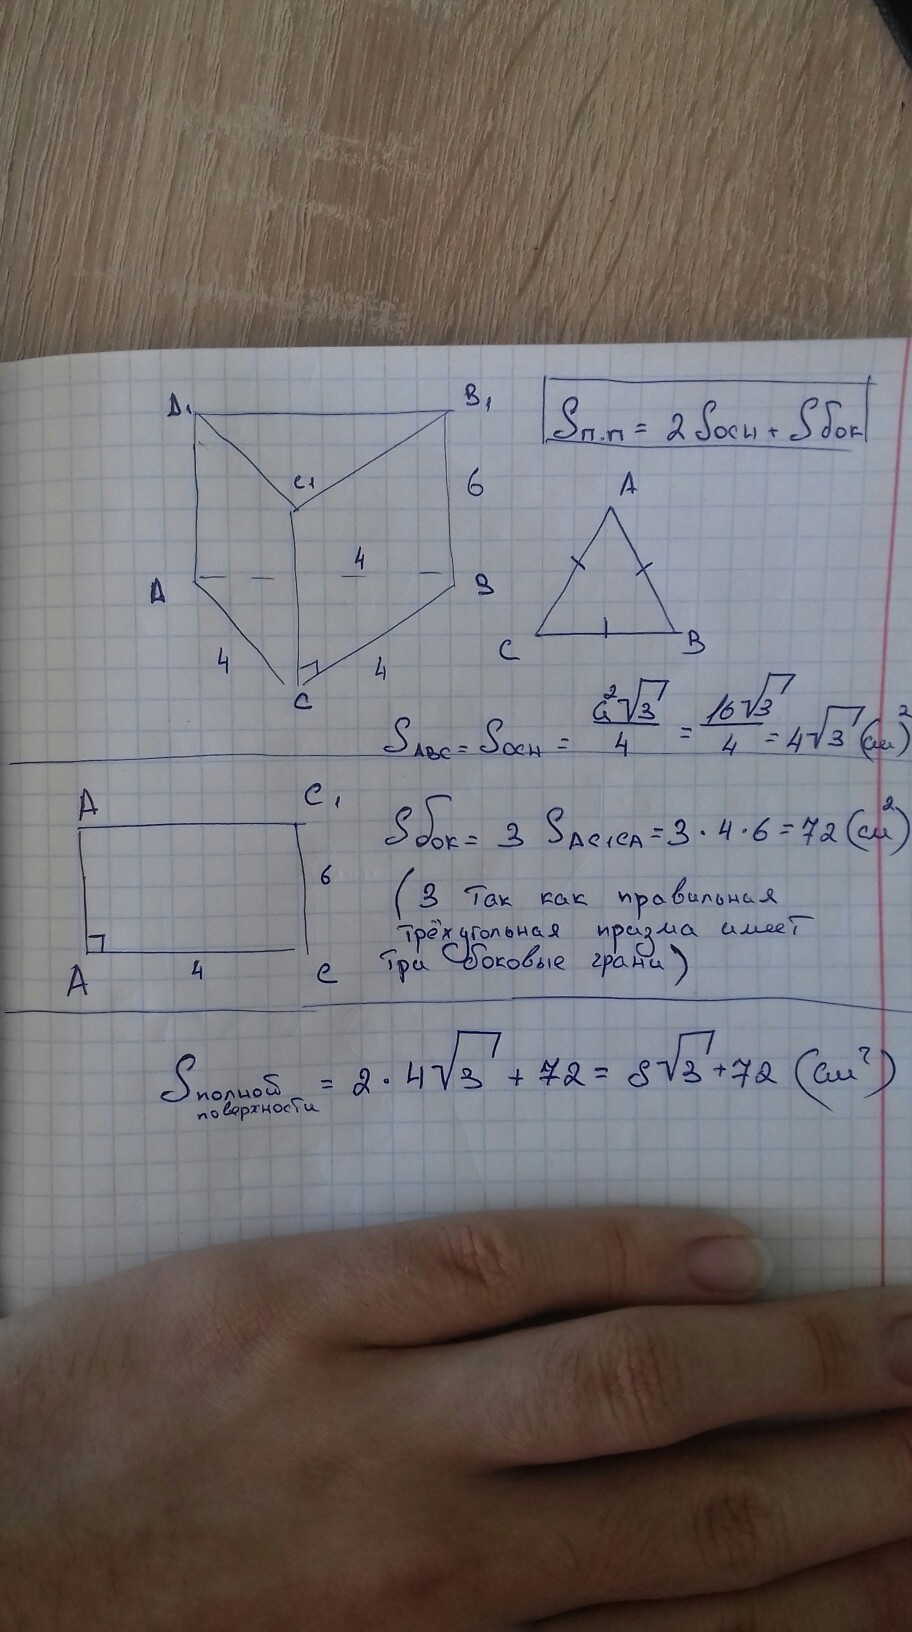 A₁
B₁
Sп.п = 2 Sосн + Sбок
C₁
6
A
4
A
B
4
4
C
B
C
S_ABC = Sосн = a²√3/4 = 16√3/4 = 4√3 (см²)
A
C₁
Sбок = 3 S_AC₁CA = 3 · 4 · 6 = 72 (см²)
6
(3 так как правильная
трёхугольная призма имеет
три боковые грани)
4
A
C
Sполной поверхности = 2 · 4√3 + 72 = 8√3 + 72 (см²)